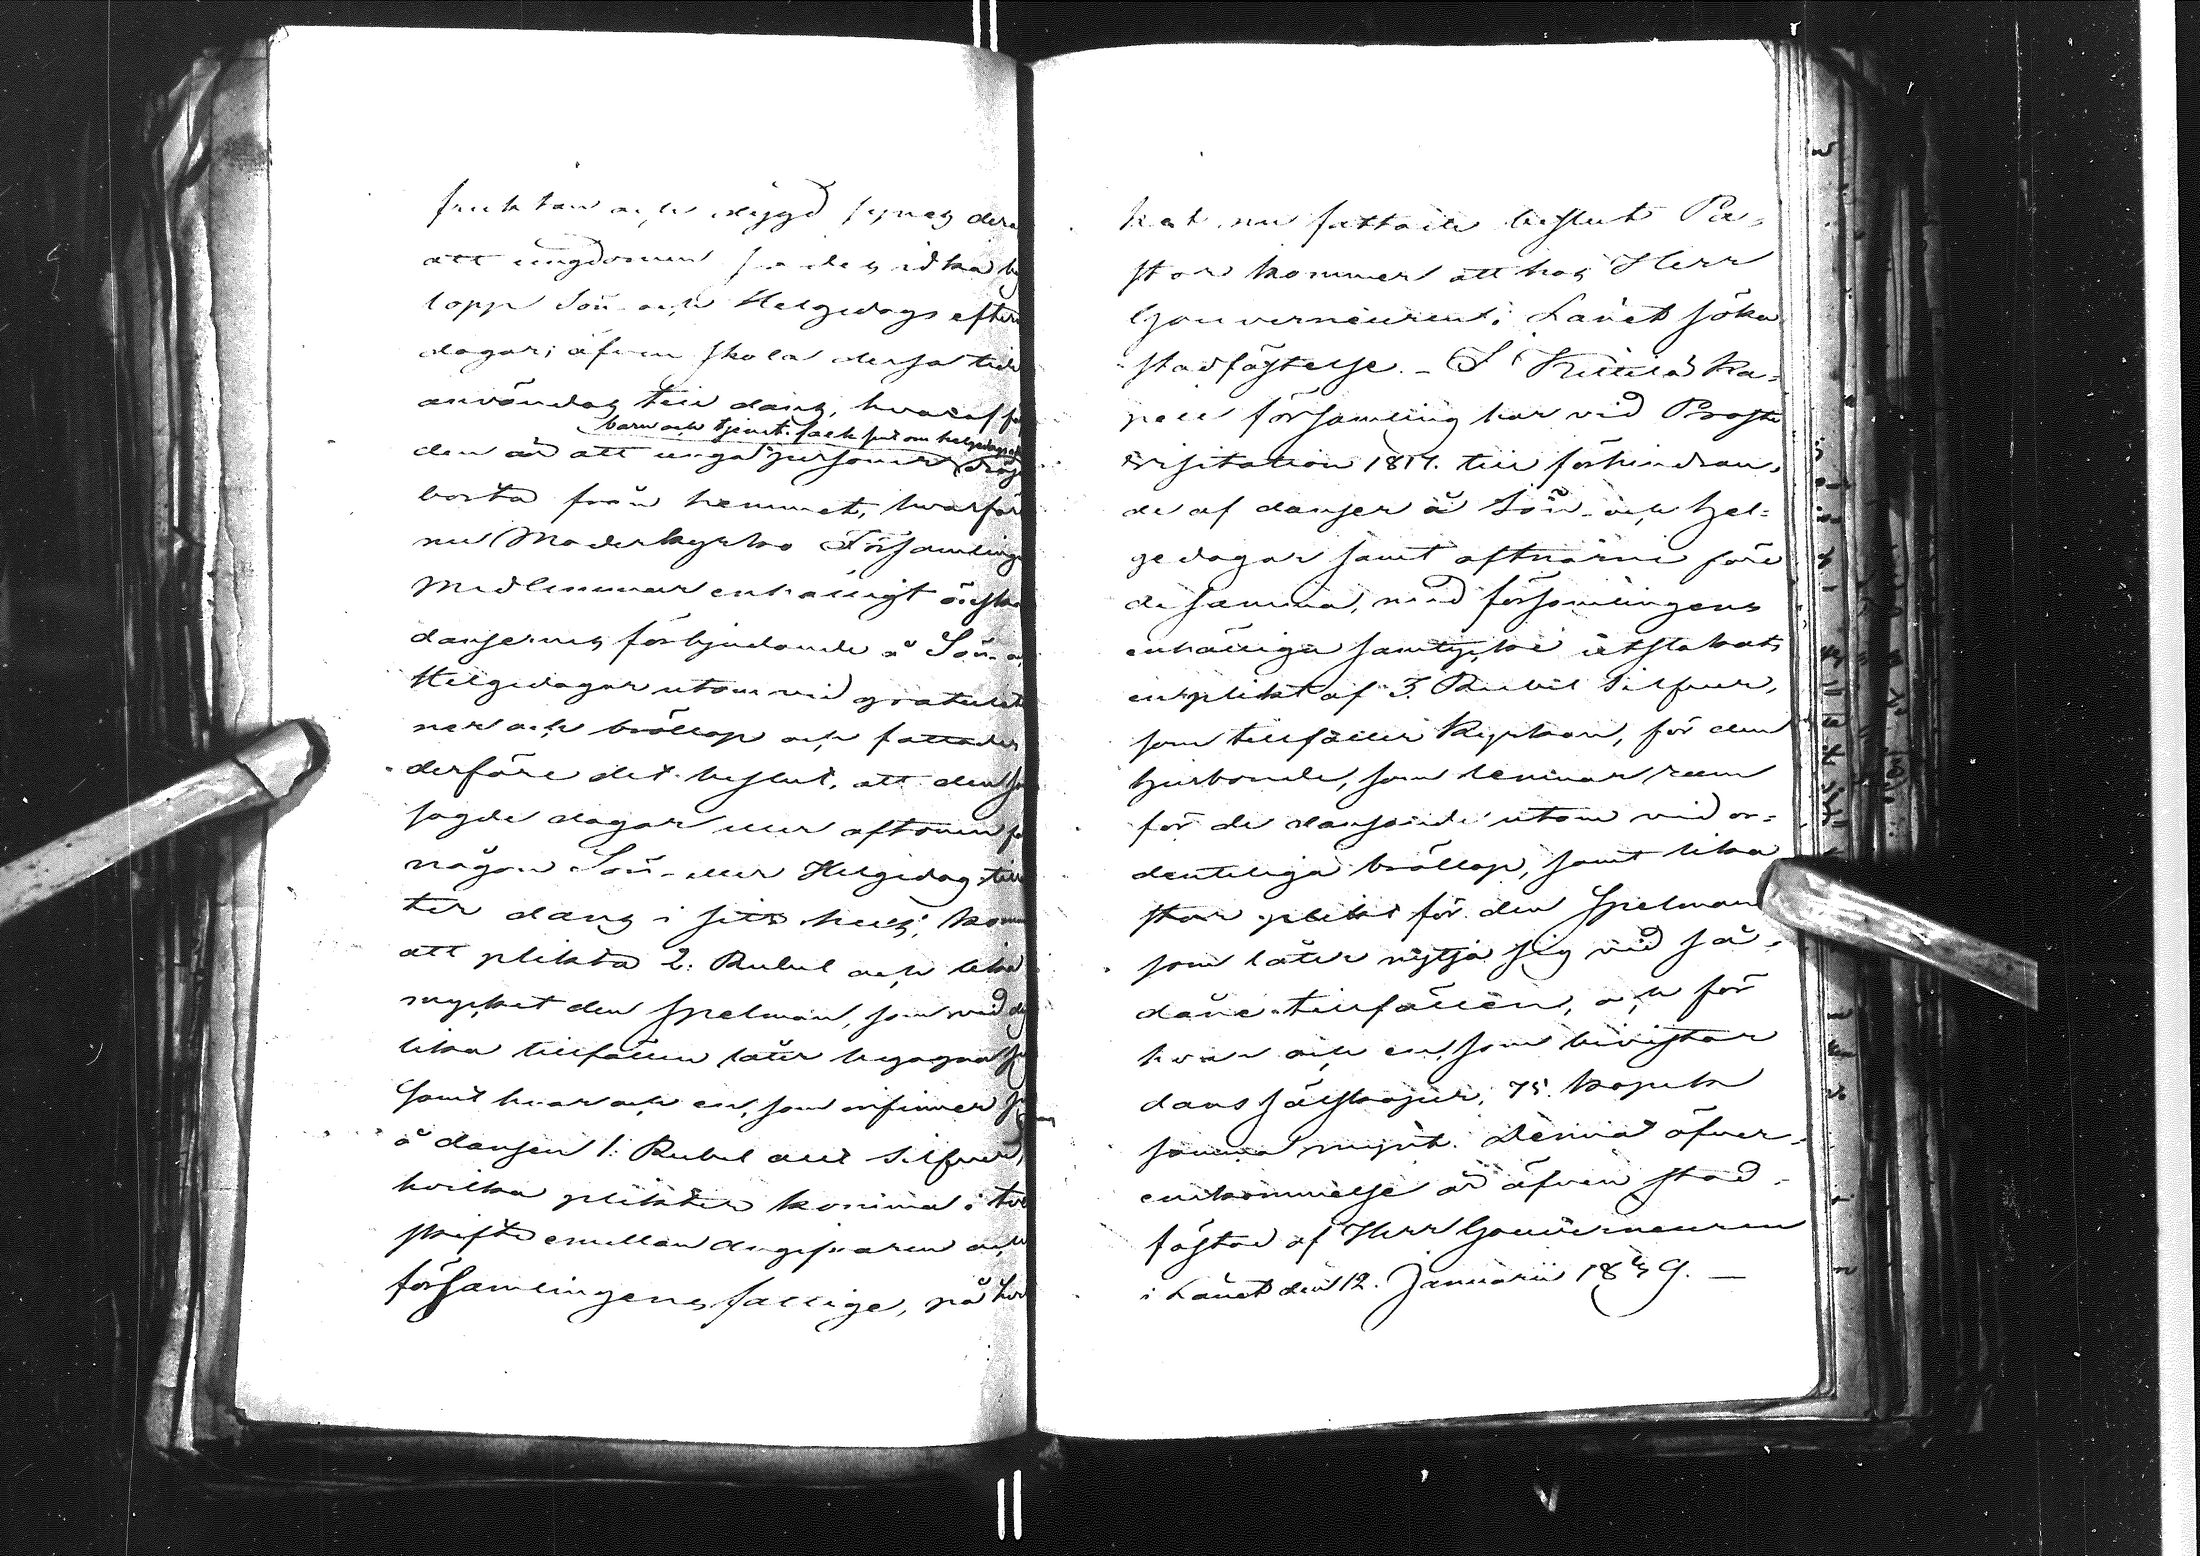 fruktan och dygd synes dera
att ungdomen
lopp Sön- och Helgedags efter
dagar; äfven skola dessa tide
användas till dans, hvaraf fö
barn och tjenstefolk helgedags
den är att unga personer dröj
borta från hemmet, hvarför
nu Moderkyrko Församlinge
Medlemmar enhälligt önska
dansernes förbjudande å Sön- o
Helgedagar utom vid gratulat
ner och bröllop och fattades
derföre det beslut, att den
sagde dagar eller aftonen fö
någon Sön- eller Helgedag till
ter dans i sitt hus, kom
att plikta 2: Rubel och lika
mycket den spelman, som vid dy
lika tillfällen låter begagna si
Samt hvar och en, som infinner si
å dansen 1: Rubel allt Silfver,
hvilka plikter komma i tve
skifte emellan angifvaren och
församlingens fattige, på hvil
ket nu fattade beslut Pa-
stor kommer att hos Herr
Gouverneuren i Länet söka
stadfästelse. - I Kittilä Ka-
pell församling har vid Prosts
visitation 1817. till förhindran-
de af danser å Sön- och Hel-
gedagar samt aftnarne före
desamma, med församlingens
enhälliga samtycke utstakats
en plikt af 3. Rubel Silfver,
som tillfaller Kyrkan, för den
husbonde, som lemnar rum
för de dansande utom vid or-
denteliga bröllop, samt lika
stor plikt för den Spelman
som låter nyttja sig vid så-
dane tillfällen, och för
hvar och en, som bivistar
danssällskaper, 75. kopek
samma mynt. Denna öfver-
enskommelse är äfven stad-
fästad af Herr Gouverneuren
i Länet den 12. Januarii 1819. -